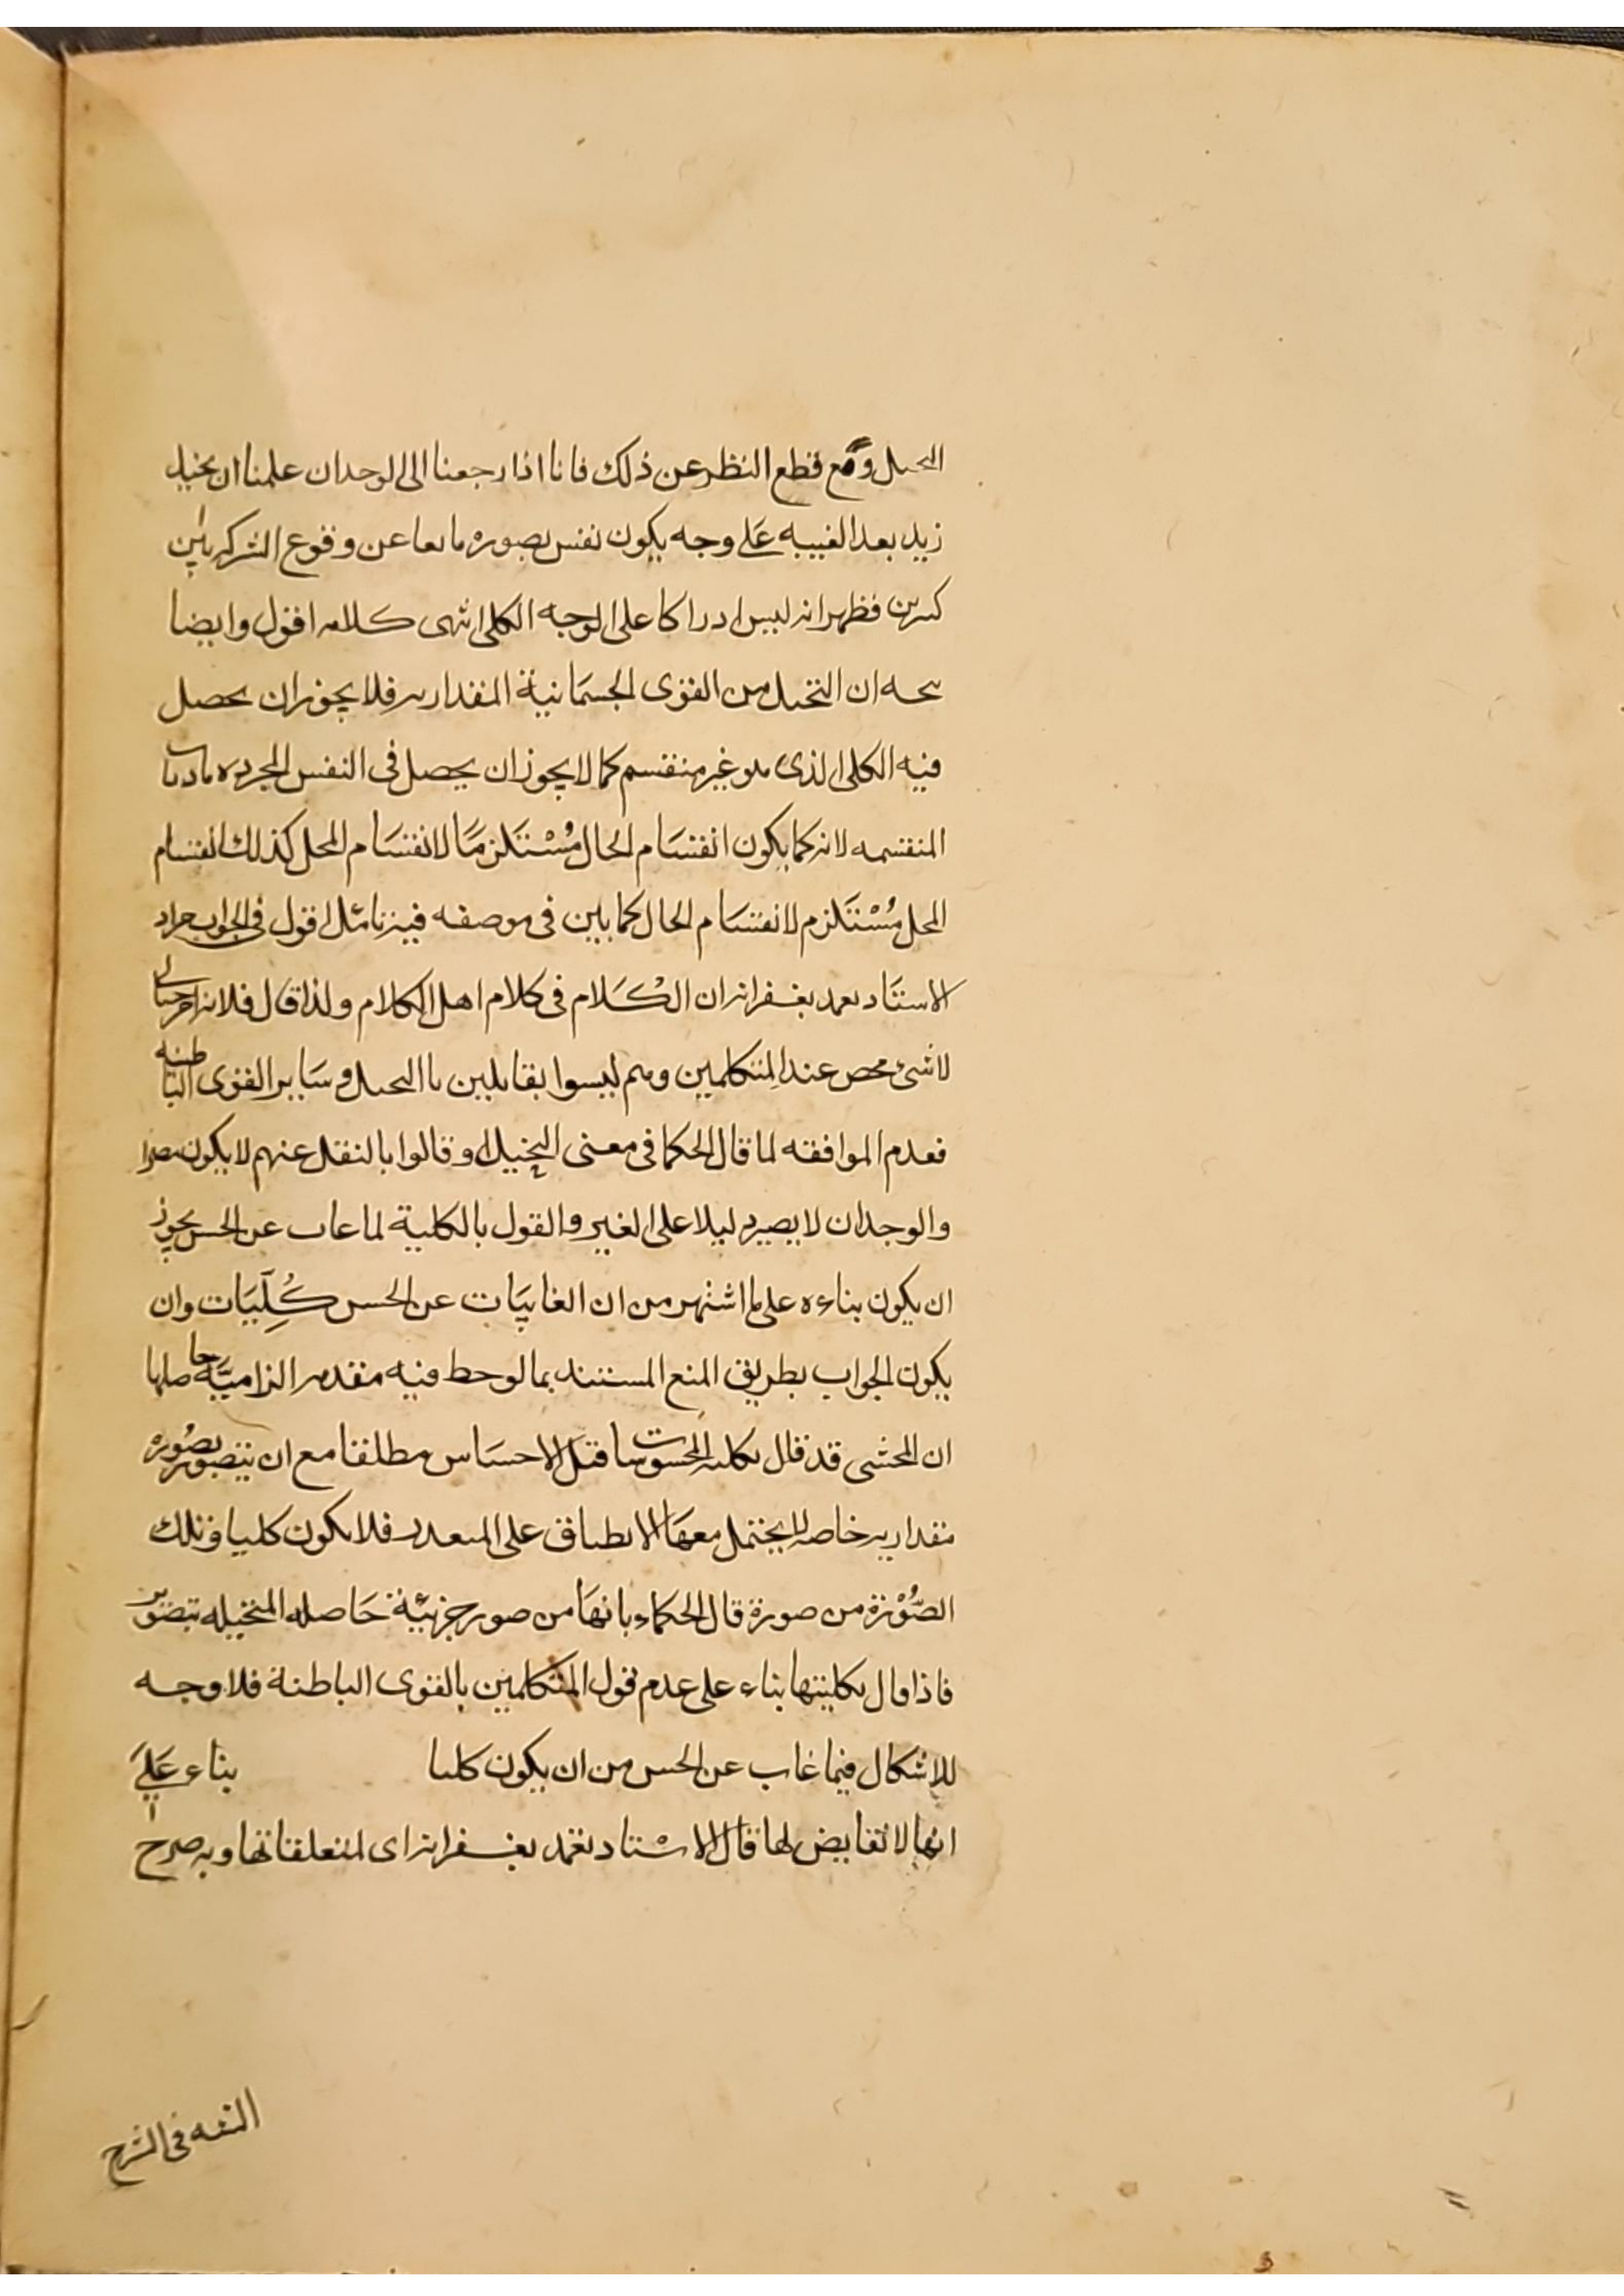 التخيل ومع قطع النظر عن ذلك فانا اذا رجعنا الى الوجدان علمنا ان تخيل
زيد بعد الغيبه على وجه يكون نفس تصوره مانعا عن وقوع الشركه بين
كثيرين فظهر انه ليس ادراكا على الوجه الكلى انتهى كلامه اقول وايضا
يتجه ان التخيل من القوى الجسمانية المقداريه فلا يجوز ان يحصل
فيه الكلى الذى هو غير منقسم كما لا يجوز ان يحصل فى النفس المجرده الماديات
المنقسمه لانه كما يكون انقسام الحال مُسْتَلزمًا لانقسام المحل كذلك انقسام
المحل مُسْتَلزم لانقسام الحال كما بين فى موضعه فيه تأمل اقول فى الجواب مراد
الاستاد تغمد بغفرانه ان الكلام فى كلام اهل الكلام ولذا قال فلانه امر خيالى
لا شئ محض عند المتكلمين وهم ليسوا بقايلين باالتخيل وساير القوى الباطنه
فعدم الموافقه لما قال الحكما فى معنى التخيل او قالوا بالنقل عنهم لا يكون مضرا
والوجدان لا يصير دليلا على الغير والقول بالكلية لما غاب عن الحس يجوز
ان يكون بناءه على ما اشتهر من ان الغايبات عن الحس كُلِّيَات وان
يكون الجواب بطريق المنع المستند بما لوحظ فيه مقدمه الزاميّة حاصلها
ان المحشى قد قال بكليه المحسوسات قبل الاحساس مطلقا مع ان يتصور بصُوره
مقداريه خاصه لا يحتمل معها الانطباق على المتعدد فلا يكون كليا وتلك
الصُّوْرَة من صورة قال الحكماء بانها من صور جزئية حَاصله المتخيله بتصوير
فاذا قال بكليتها بناء على عدم قول المتكلمين بالقوى الباطنة فلا وجه
للاشكال فيما غاب عن الحس من ان يكون كليا بناء عَلَى
انها لا نقايض لها قال الاستاد تغمد بغفرانه اى لمتعلقاتها وبه صرح
فى الشرح